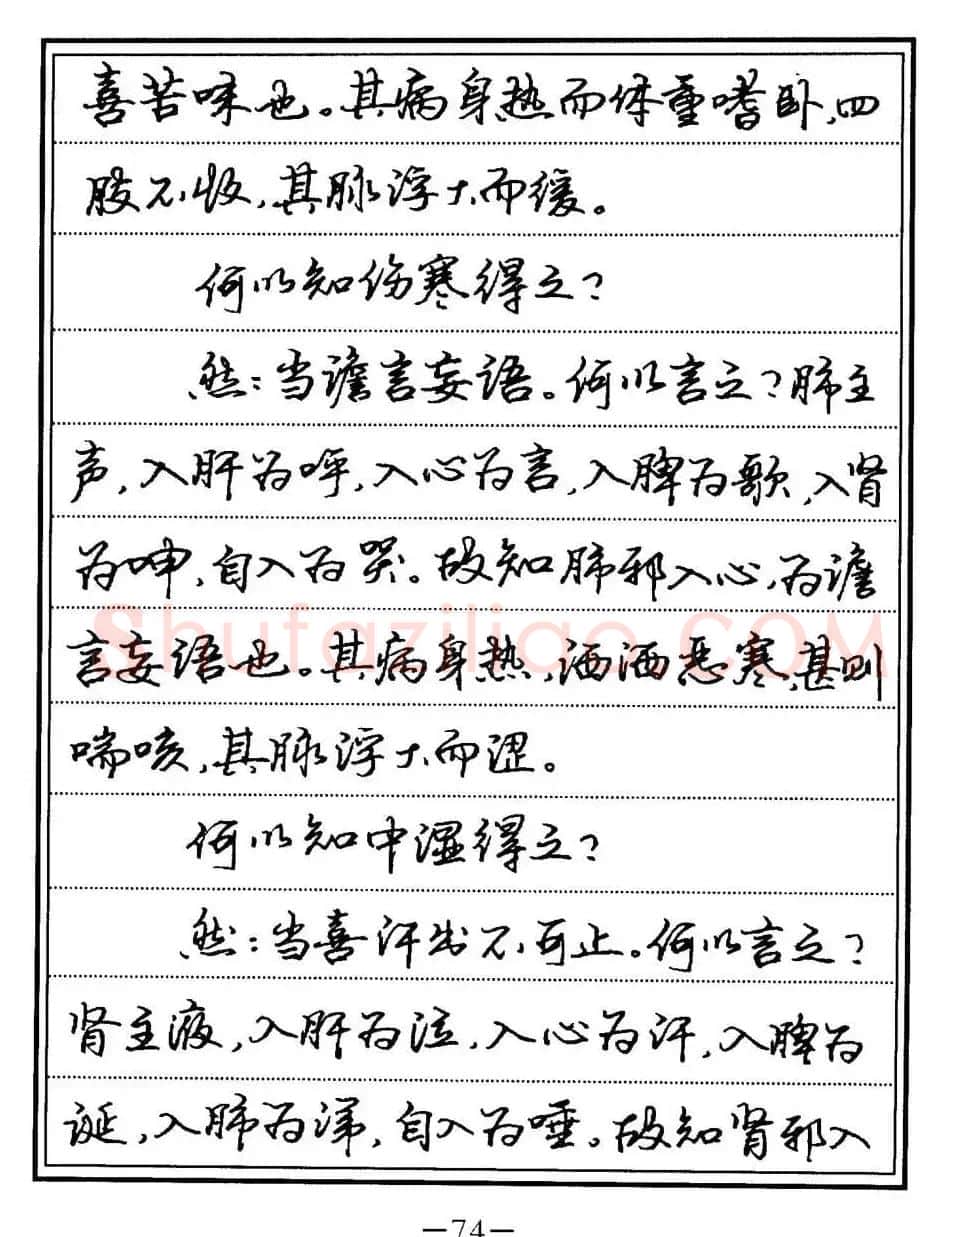 喜苦味也。其病身热而体重嗜卧,四
肢不收,其脉浮大而缓。
何以知伤寒得之?
然:当谵言妄语。何以言之?肺主
声,入肝为呼,入心为言,入脾为歌,入肾
为呻,自入为哭。故知肺邪入心,为谵
言妄语也。其病身热,洒洒恶寒,甚则
喘咳,其脉浮大而涩。
何以知中湿得之?
然:当喜汗出不可止。何以言之?
肾主液,入肝为泣,入心为汗,入脾为
涎,入肺为涕,自入为唾。故知肾邪入
Shufaziliao.COM
—74—